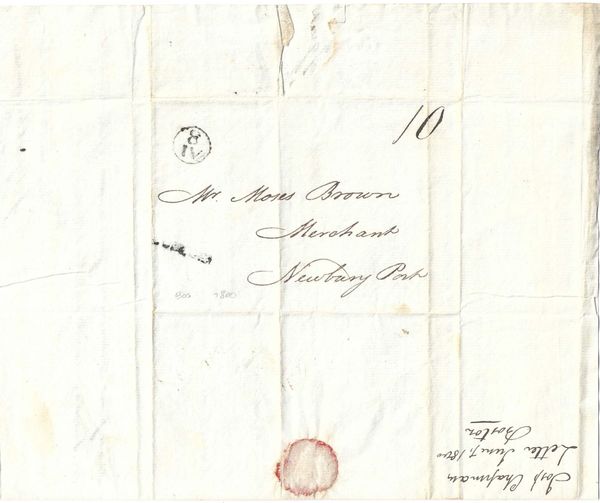 10
8
Mr. Moses Brown
Merchant
Newbury Port
1800
Chapman
Letter June 7, 1800
Boston